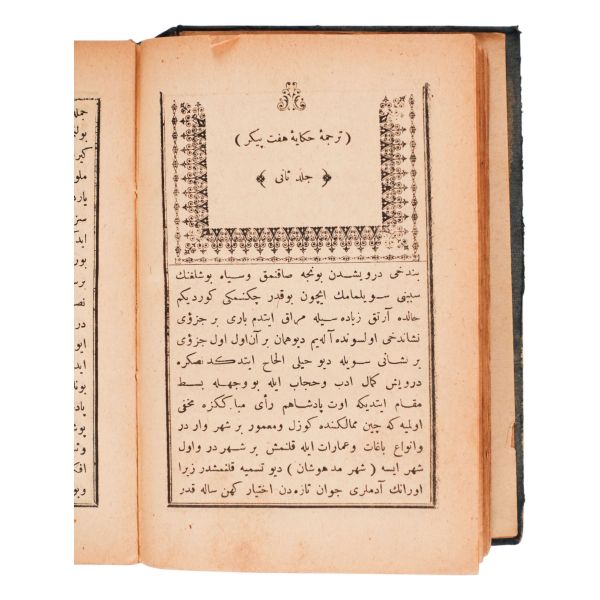 ( ترجمۀ حکایۀ هفت پیکر )
﴿ جلد ثانی ﴾
بندخی درویشدن بونجه صاقنمق وسیاه پوشلغنك
سببنی سویلمامك ایچون بوقدر چکنمکی کوردیکم
حالده آرتق زیاده سیله مراق ایتدم باری بر جزؤی
نشاندخی اولسونده آله یم دیو همان بر آن اول اول جزؤی
بر نشانی سویله دیو خیلی الحاح ایتدکدنصکره
درویش کمال ادب وحجاب ایله بو وجهله بسط
مقام ایتدیکه اوت پادشاهم رأی مبارککزه مخفی
اولمیه که چین ممالکنده کوزل ومعمور بر شهر وار در
وانواع باغات وعمارات ایله قلنمش بر شهر در واول
شهر ایسه ( شهر مدهوشان ) دیو تسمیه قلنمشدر زیرا
اورانك آدملری جوان تازه دن اختیار کهن ساله قدر
جمله
بو
کبر
ملو
یارد
سر
ایدک
بور
نصـ
در
ایو
اید
بونا
پاد
پوش
وت
افک
وبو